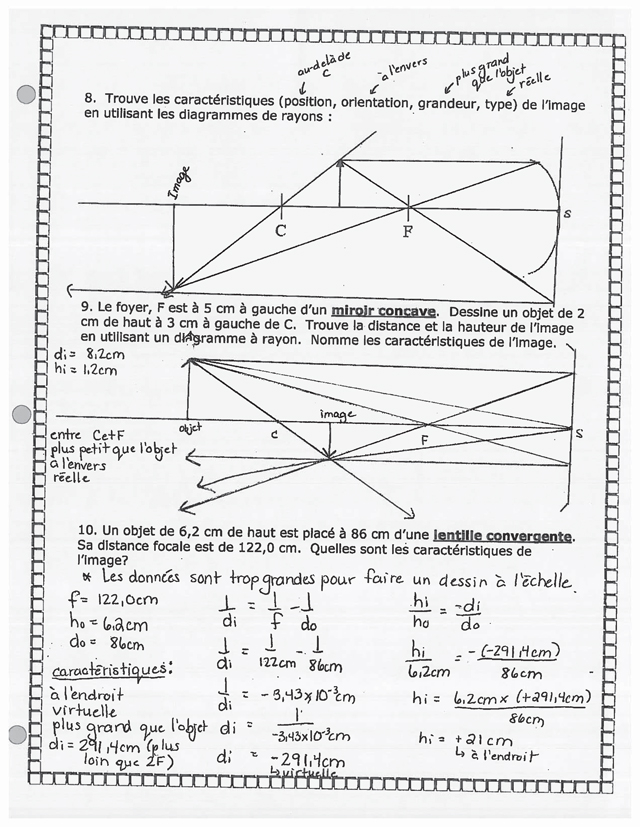 au-delà de
C
à l'envers
plus grand
que l'objet
réelle
8. Trouve les caractéristiques (position, orientation, grandeur, type) de l'image
en utilisant les diagrammes de rayons :
Image
C
F
S
9. Le foyer, F est à 5 cm à gauche d'un miroir concave. Dessine un objet de 2
cm de haut à 3 cm à gauche de C. Trouve la distance et la hauteur de l'image
en utilisant un diagramme à rayon. Nomme les caractéristiques de l'image.
di = 8,2cm
hi = 1,2cm
objet
c
image
F
S
entre C et F
plus petit que l'objet
à l'envers
réelle
10. Un objet de 6,2 cm de haut est placé à 86 cm d'une lentille convergente.
Sa distance focale est de 122,0 cm. Quelles sont les caractéristiques de
l'image?
* Les données sont trop grandes pour faire un dessin à l'échelle.
f = 122,0cm
ho = 6,2cm
do = 86cm
caractéristiques:
à l'endroit
virtuelle
plus grand que l'objet
di = 291,4cm (plus
loin que 2F)
1/di = 1/f - 1/do
1/di = 1/122cm - 1/86cm
1/di = -3,43x10⁻³cm
di = 1/-3,43x10⁻³cm
di = -291,4cm
↳ virtuelle
hi/ho = -di/do
hi/6,2cm = -(-291,4cm)/86cm
hi = 6,2cm x (+291,4cm)/86cm
hi = +21cm
↳ à l'endroit